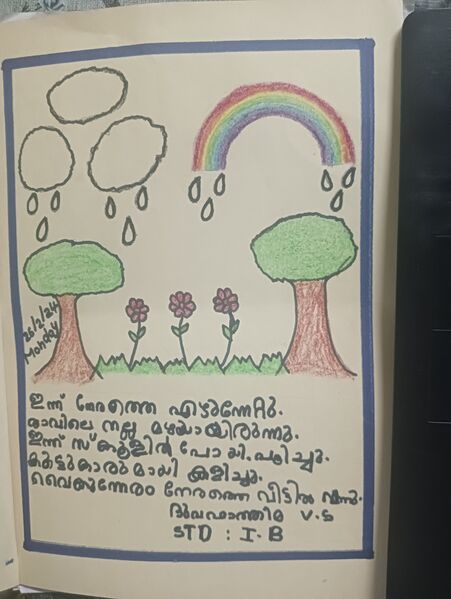 26/2/24
Monday
ഇന്ന് നേരത്തെ എഴുന്നേറ്റു.
രാവിലെ നല്ല മഴയായിരുന്നു.
ഇന്ന് സ്കൂളിൽ പോയി.പഠിച്ചു.
കൂട്ടുകാരുമായി കളിച്ചു.
വൈകുന്നേരം നേരത്തെ വീട്ടിൽ വന്നു.
V.S
STD : I-B